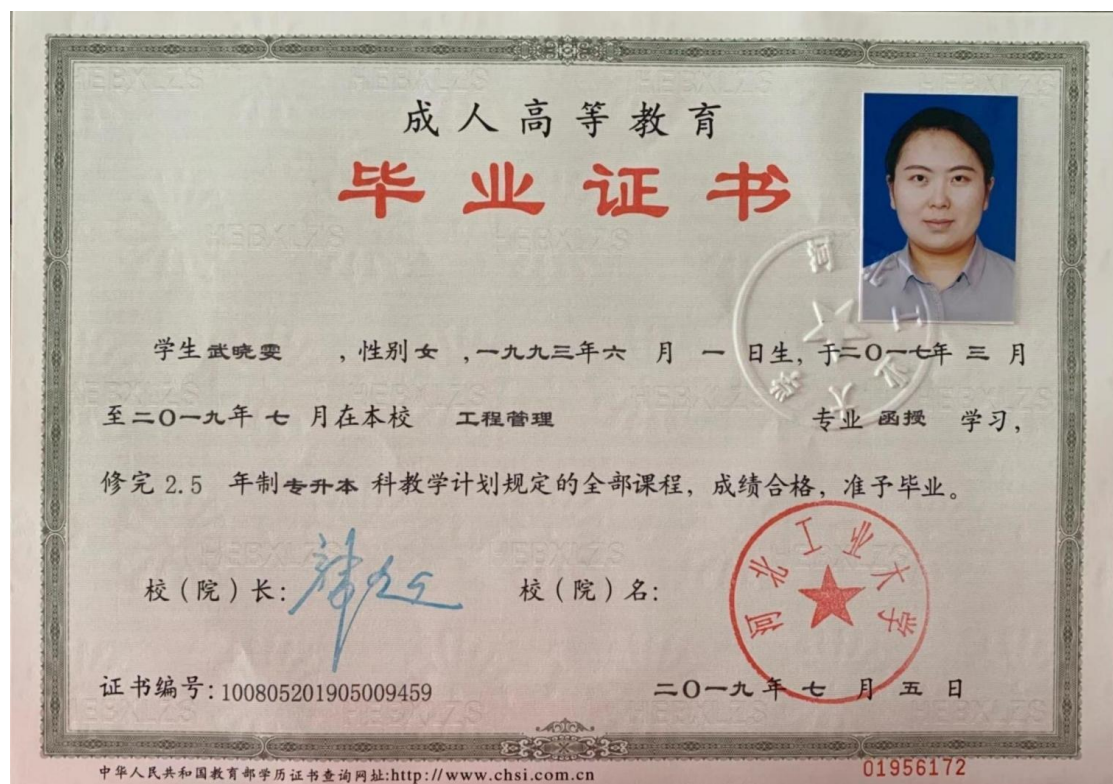 成人高等教育
毕业证书
学生 武晓雯 ，性别 女 ，一九九三年 六 月 一 日生，于二〇一七年 三 月
至二〇一九年 七 月在本校 工程管理 专业 函授 学习，
修完 2.5 年制 专升本 科教学计划规定的全部课程，成绩合格，准予毕业。
校（院）长： 校（院）名：
河北工业大学
证书编号：100805201905009459 二〇一九年 七 月 五 日
中华人民共和国教育部学历证书查询网址:http://www.chsi.com.cn
01956172
HEBXLZS